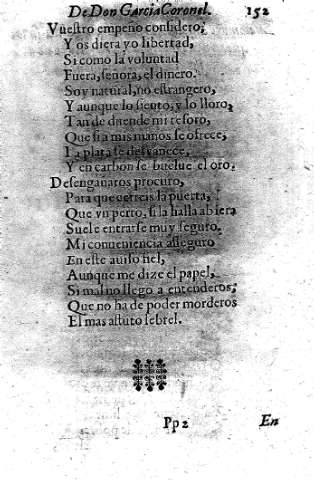 De Don Garcia Coronel. 152
Vuestro empeño considero,
Y os diera yo libertad,
Si como la voluntad
Fuera, señora, el dinero.
Soy natural, no estrangero,
Y aunque lo siento, y lo lloro,
Tan de duende mi tesoro,
Que si a mis manos se ofrece,
La plata se desvanece,
Y en carbon se buelue el oro.
Desengañaros procuro,
Para que cerreis la puerta,
Que vn perro, si la halla abierta
Suele entrarse muy seguro.
Mi conueniencia asseguro
En este auiso fiel,
Aunque me dize el papel,
Si mal no llego a entenderos,
Que no ha de poder morderos
El mas astuto lebrel.
Pp2 En